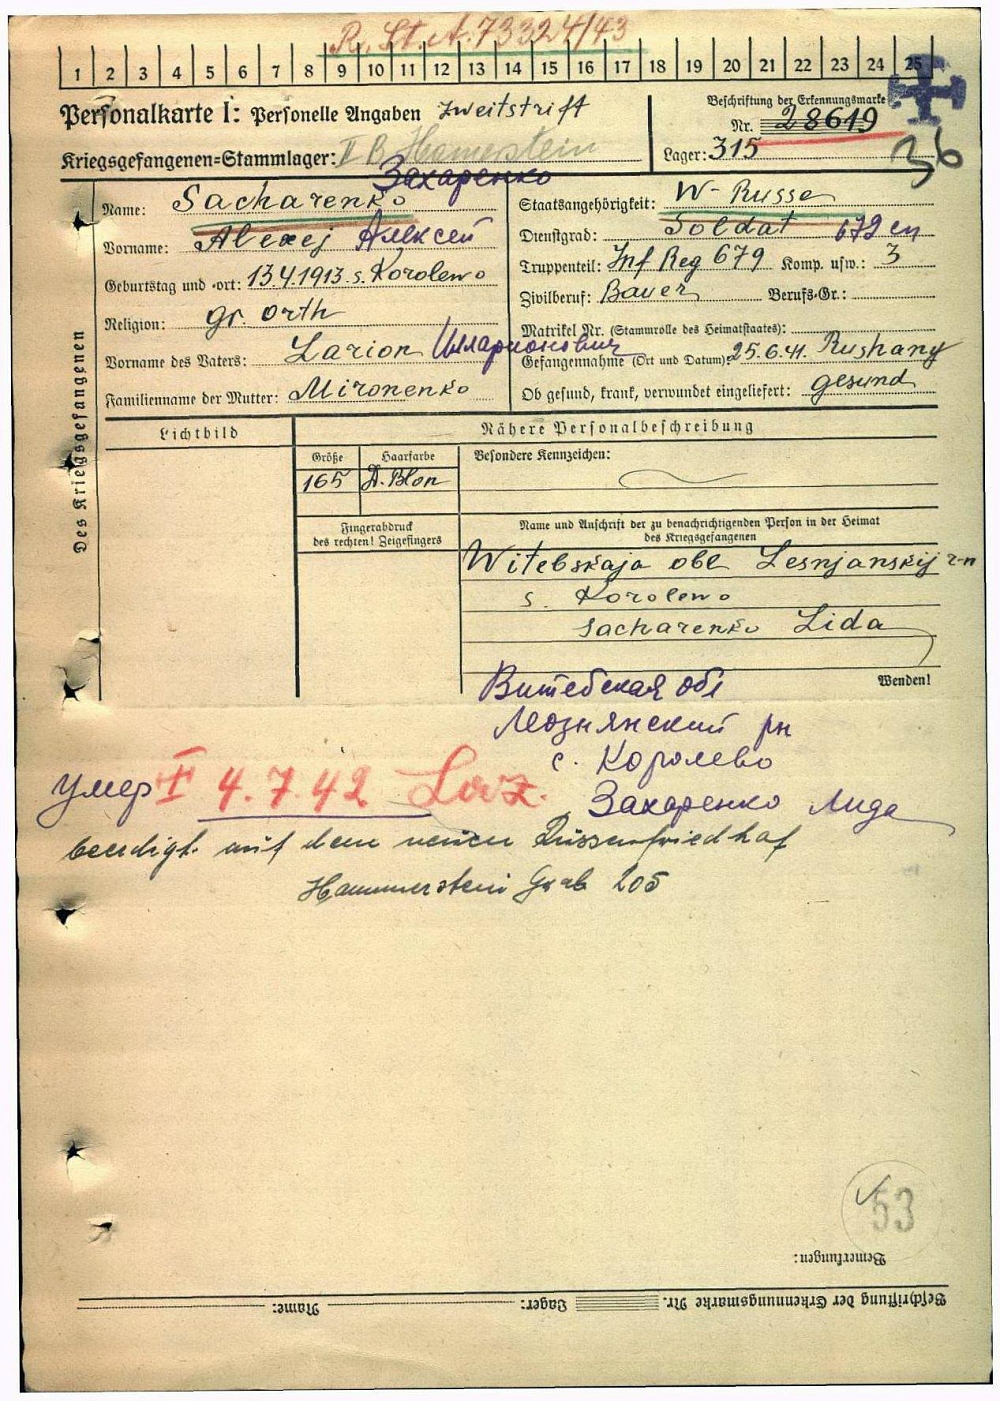 R. St. A. 73324/43
1 2 3 4 5 6 7 8 9 10 11 12 13 14 15 16 17 18 19 20 21 22 23 24 25
Personalkarte I: Personelle Angaben Zweitstrift
Kriegsgefangenen=Stammlager: II B Hamerstein
Beschriftung der Erkennungsmarke
Nr. 28619
Lager: 315
36
Захаренко
Des Kriegsgefangenen
Name: Sacharenko
Vorname: Alexej Алексей
Geburtstag und =ort: 13.4.1913. s. Korolewo
Religion: gr. orth
Vorname des Vaters: Larion Илларионович
Familienname der Mutter: Mironenko
Staatsangehörigkeit: W- Russe
Dienstgrad: Soldat 679 сп
Truppenteil: Inf Reg 679 Komp. usw.: 3
Zivilberuf: Bauer Berufs-Gr.:
Matrikel Nr. (Stammrolle des Heimatstaates):
Gefangennahme (Ort und Datum): 25.6.41. Rushany
Ob gesund, krank, verwundet eingeliefert: gesund
Lichtbild
Nähere Personalbeschreibung
Größe Haarfarbe Besondere Kennzeichen:
165 D. Blon
Fingerabdruck
des rechten! Zeigefingers
Name und Anschrift der zu benachrichtigenden Person in der Heimat
des Kriegsgefangenen
Witebskaja obl Lesnjanskij r-n
s. Korolewo
Sacharenko Lida
Wenden!
Витебская обл
Лознянский рн
с. Королево
Захаренко Лида
умер † 4.7.42 Laz.
beerdigt auf dem neuen Russenfriedhof
Hammerstein Grab 205
53
Bemerkungen:
Beschriftung der Erkennungsmarke Nr. Lager: Name: